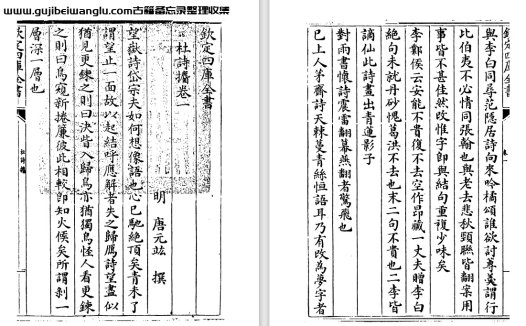 www.gujibeiwanglu.com古籍备忘录整理收集
欽定四庫全書
杜詩攟卷一
明 唐元竑 撰
望嶽詩岱宗夫如何想像語也心已馳絶頂矣青未了
謂望止一面故以起結呼應解者失之歸鴈詩望盡似
猶見更鍊之則曰決眥入歸鳥亦猶獨鳥怪人看更鍊
之則曰鳥窺新捲簾彼此相較即知火候矣所謂剝一
層深一層也
欽定四庫全書
欽定四庫全書
與李白同尋范隱居詩向來吟橘頌誰欲討蓴羹謂行
比伯夷不必情同張翰也與老去悲秋頸聯皆翻案用
事皆不甚佳然改惟字即與結句重複少味矣
李鄴侯云安能不貴復不去空作昻藏一丈夫贈李白
絶句未就丹砂愧葛洪不去也末二句不貴也二李皆
謫仙此詩畫出青蓮影子
對雨書懷詩震雷翻幕燕翻者驚飛也
已上人茅齋詩天棘蔓青絲恒語耳乃有改為夢字者